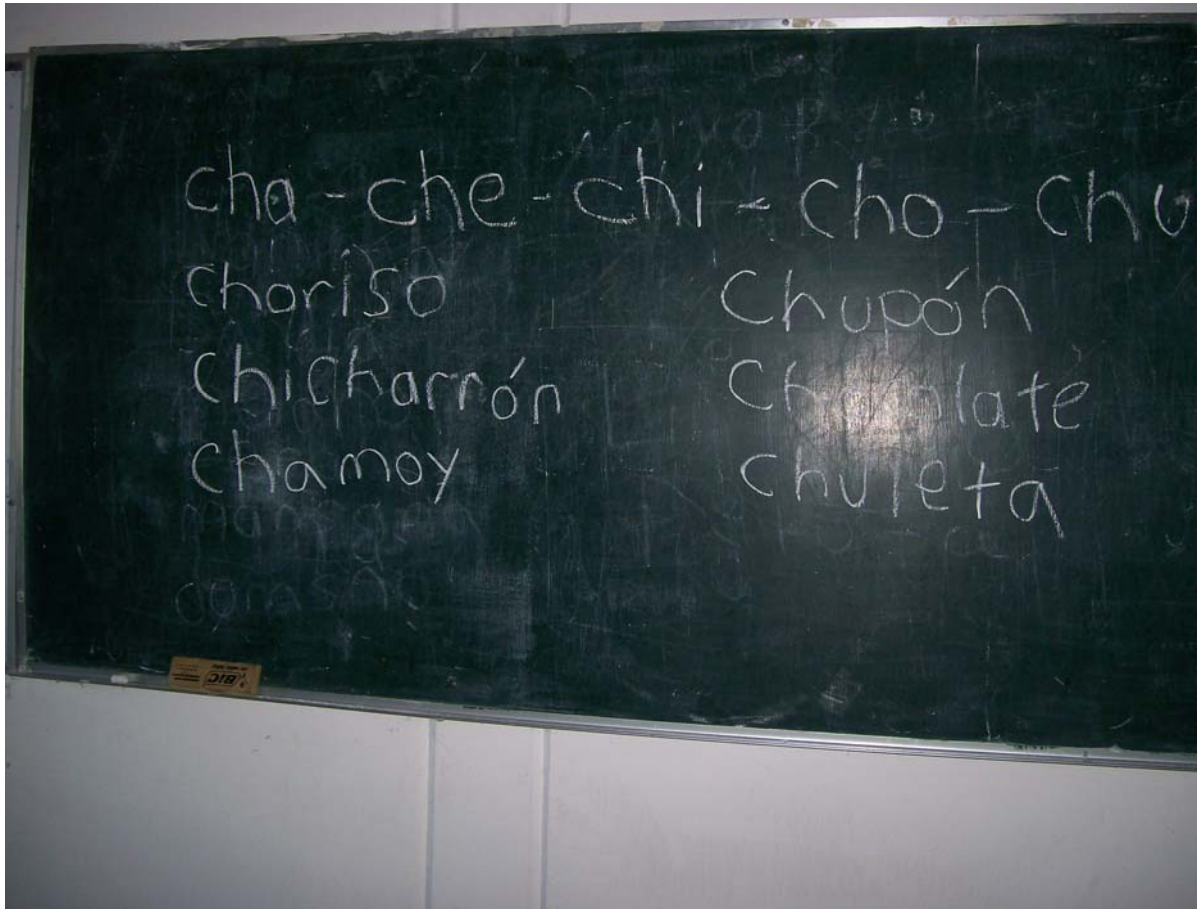 cha - che - chi - cho - chu
choriso
chicharrón
chamoy
chupón
chocolate
chuleta
BIC